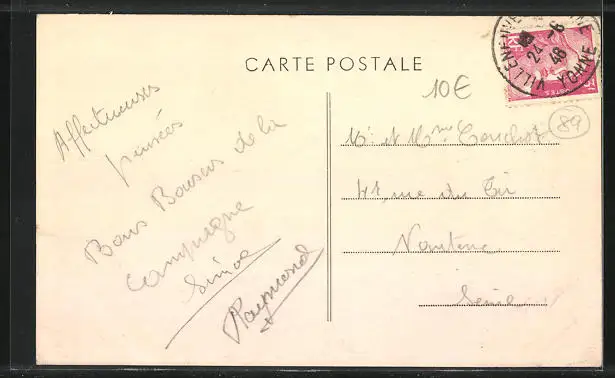 CARTE POSTALE
VILLENEUVE
24 -6
48
YONNE
RF
POSTES
10€
89
Affectueuses
pensées
Bons Baisers de la
Campagne
Simone
Raymond
Mr et Mme
41, rue du Tir
Nanterre
Seine